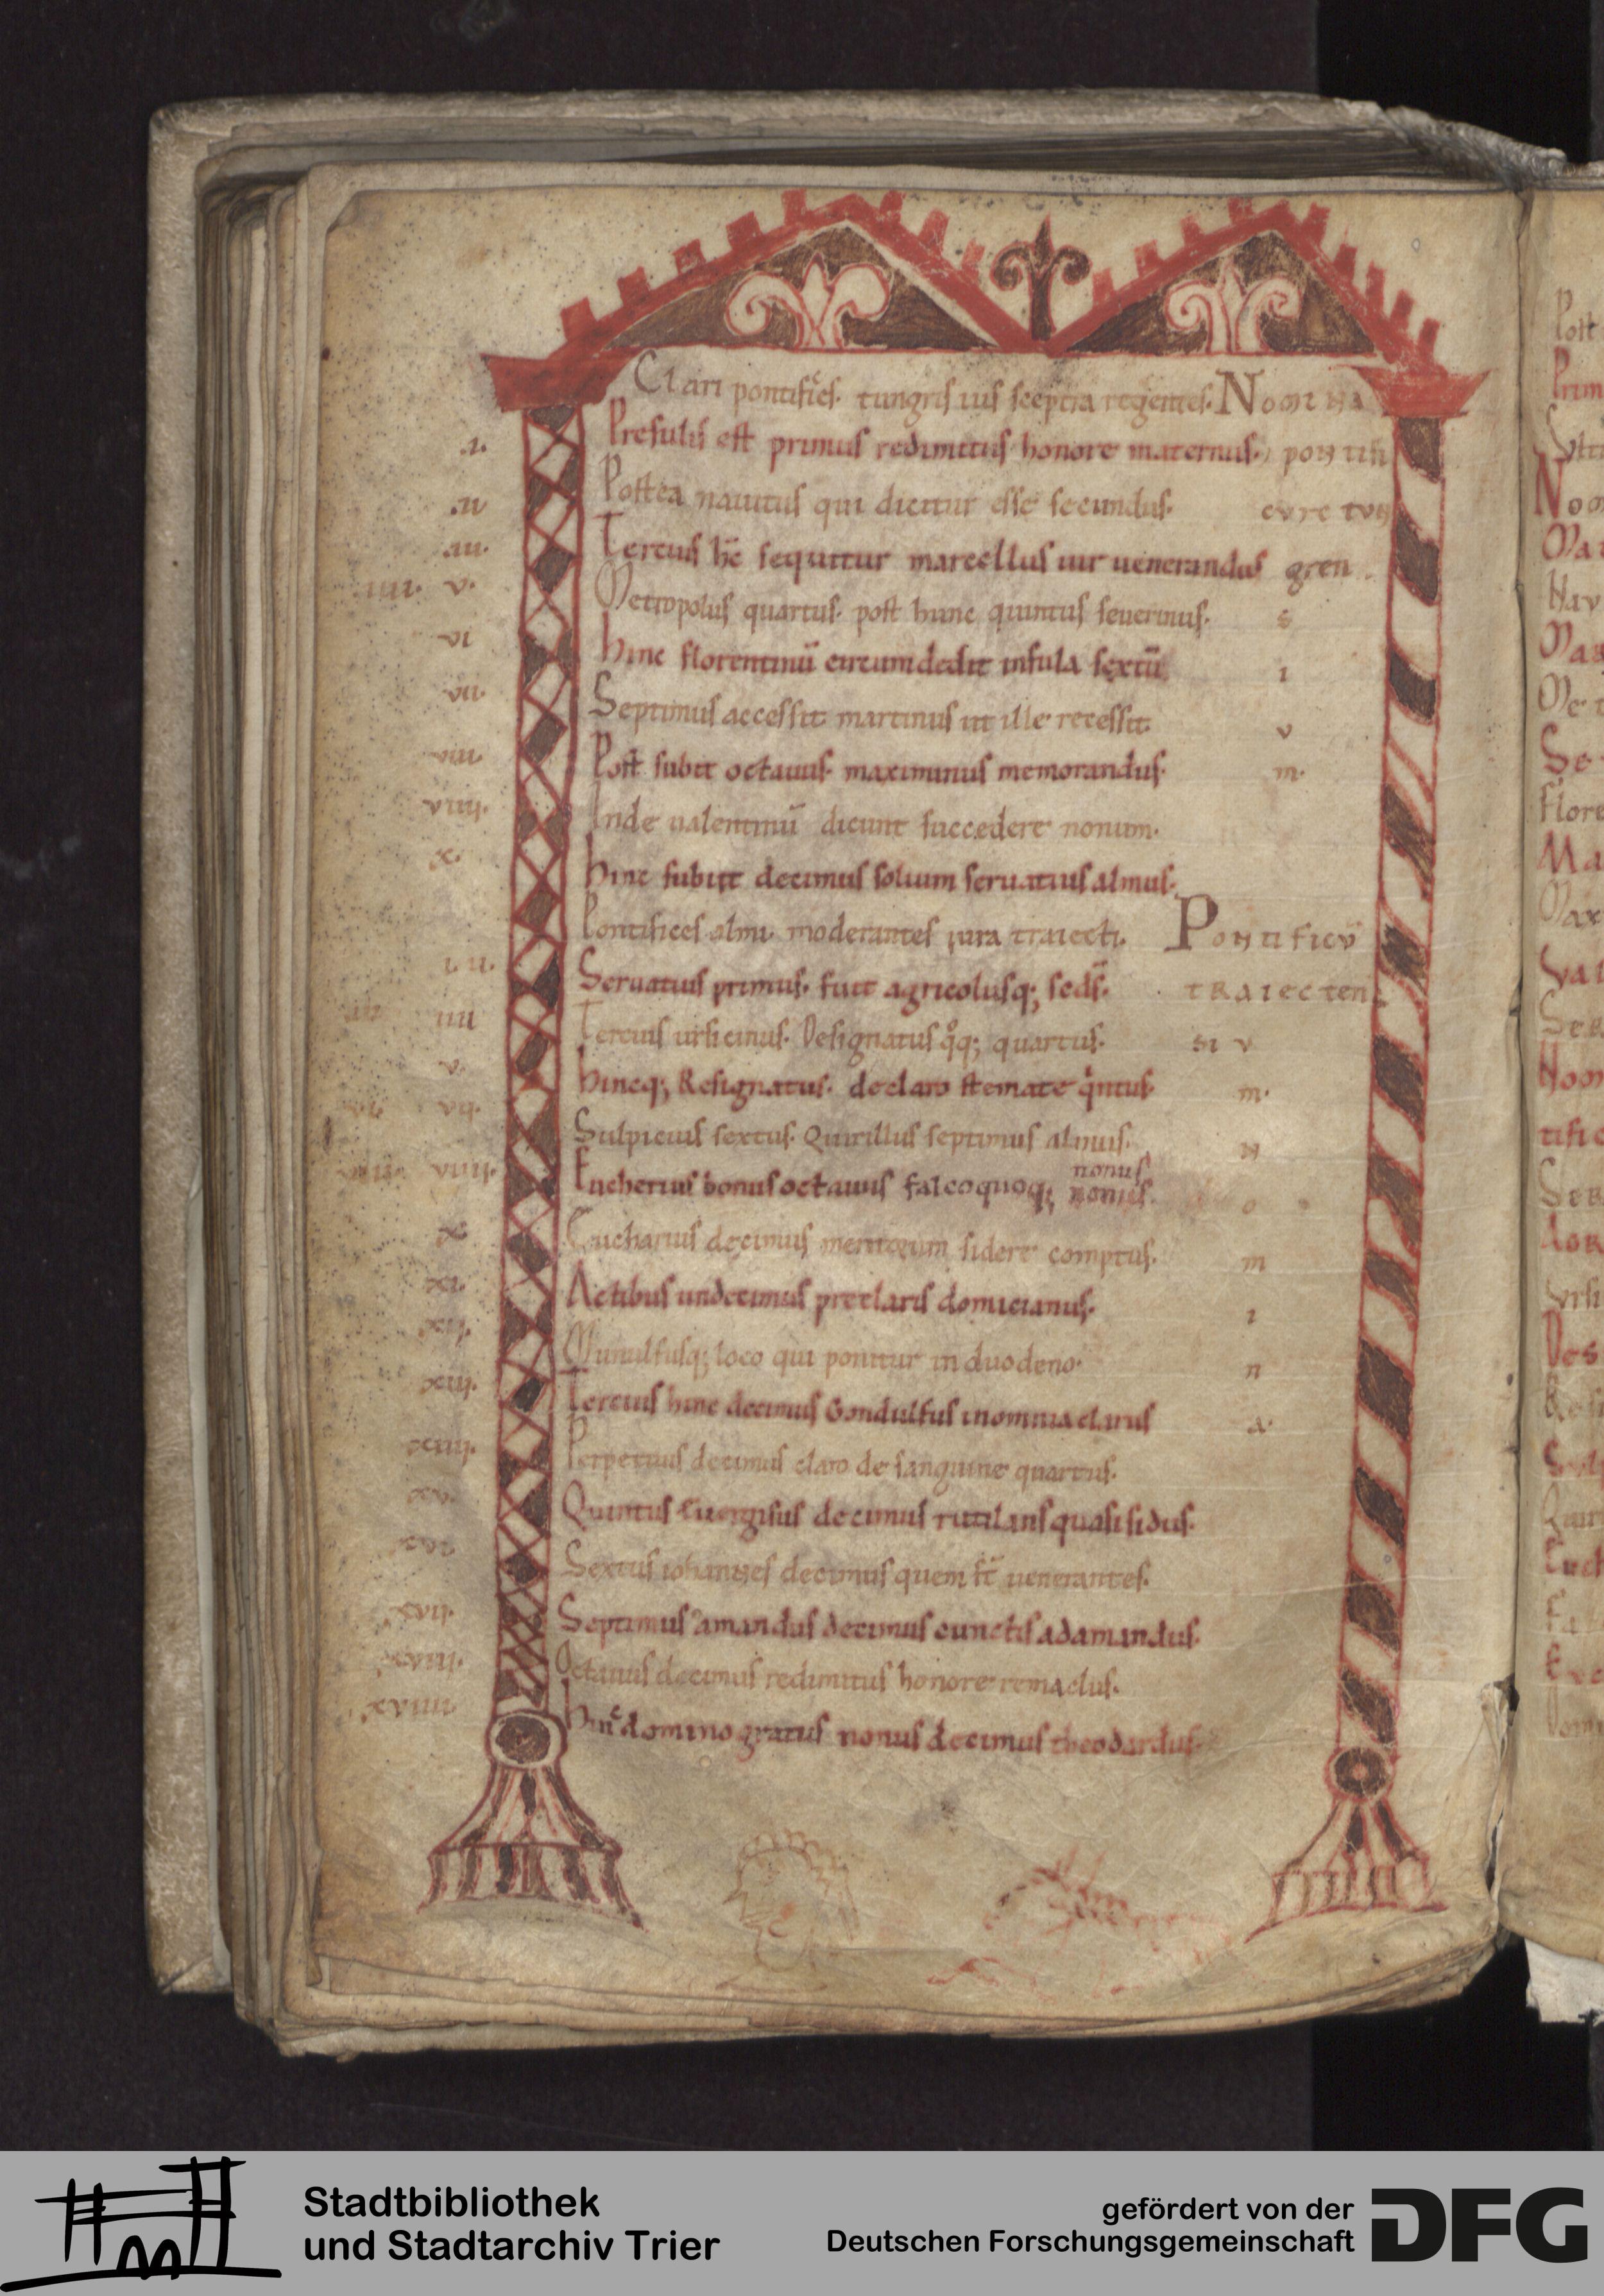 Clari pontifices. tungris ius sceptra regentes. Nomina
.i. Presulis est primus redimitus honore maternus. pontifi
.ii. Postea nauitus qui dicitur esse secundus. cũ tun
.iii. Tercius hc̄ sequitur marcellus uir uenerandus gren
.iiii. v. Metropolus quartus. post hunc quintus seuerinus. s
vi Hinc florentinū circumdedit infula sextū i
vii. Septimus accessit martinus ut ille recessit. v
viii. Post subit octauus. maximinus memorandus. m.
viiii. Inde ualentinū dicunt succedere nonum.
x. Hinc subiit decimus solium seruatius almus.
Pontifices almi. moderantes iura traiecti. Pontificū
i. ii. Seruatius primus. fuit agricolusq; seds̄. traiecten
iii iiii Tercius ursicinus. Designatus q̊q; quartus. si v
v. Hincq; Resignatus. de claro stemate qintus m.
vi. vii. Sulpicius sextus. Quirillus septimus almus. n
viii. viiii. Eucherius bonus octauus falcoquoq; nonus nonus. o
x. Eucharius decimus meritorum sidere comptus. m
xi. Actibus undecimus preclaris domicianus. i
xii. Munulfusq; loco qui ponitur in duodeno. n
xiii. Tercius hinc decimus Gondulfus in omnia clarus a.
xiiii. Perpetuus decimus claro de sanguine quartus.
xv. Quintus Euergisus decimus rutilans quasi sidus.
xvi. Sextus iohannes decimus quem st̄ uenerantes.
xvii. Septimus amandus decimus cunctis adamandus.
xviii. Octauus decimus redimitus honore remaclus.
xviiii Hinc domino gratus nonus decimus theodardus.
Stadtbibliothek
und Stadtarchiv Trier
gefördert von der
Deutschen Forschungsgemeinschaft
DFG